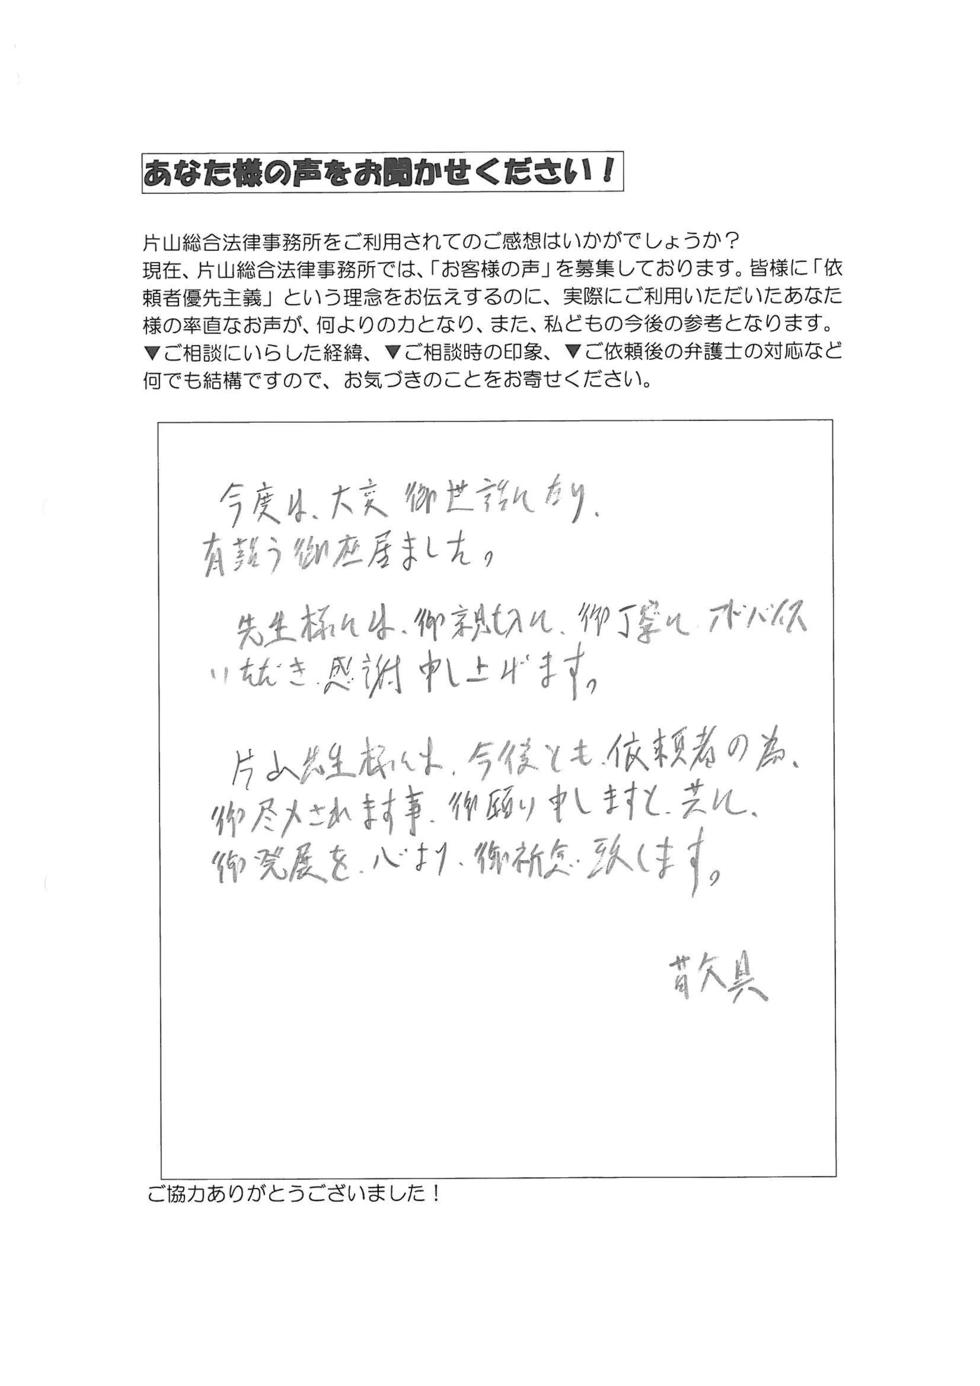 あなた様の声をお聞かせください！
片山総合法律事務所をご利用されてのご感想はいかがでしょうか？
現在、片山総合法律事務所では、「お客様の声」を募集しております。皆様に「依
頼者優先主義」という理念をお伝えするのに、実際にご利用いただいたあなた
様の率直なお声が、何よりの力となり、また、私どもの今後の参考となります。
▼ご相談にいらした経緯、▼ご相談時の印象、▼ご依頼後の弁護士の対応など
何でも結構ですので、お気づきのことをお寄せください。
今度は、大変御世話になり、
有難う御座居ました。
先生様には、御親切に、御丁寧に アドバイス
いただき、感謝申し上げます。
片山先生様には、今後とも、依頼者の為、
御尽メされます事、御願い申しますと、共に、
御発展を、心より、御祈念、致します。
敬具
ご協力ありがとうございました！